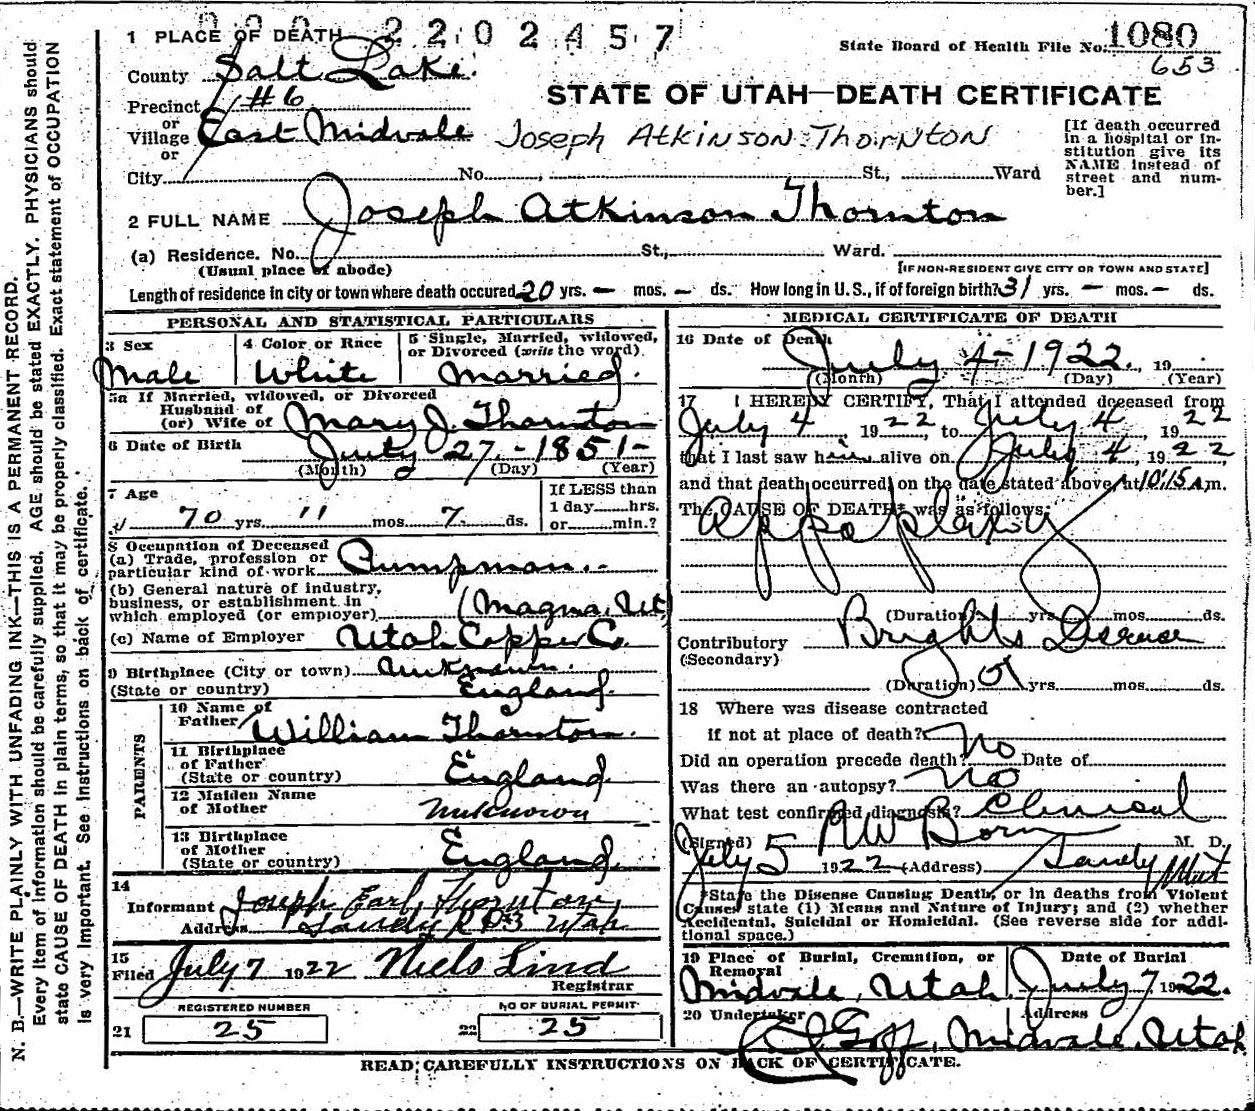 2202457
1 PLACE OF DEATH
State Board of Health File No. 1080
653
County Salt Lake.
Precinct #6
or
Village East Midvale
or
STATE OF UTAH—DEATH CERTIFICATE
Joseph Atkinson Thornton
[If death occurred in a hospital or institution give its NAME instead of street and number.]
City No. St., Ward
2 FULL NAME Joseph Atkinson Thornton
(a) Residence. No. St., Ward.
(Usual place of abode) [IF NON-RESIDENT GIVE CITY OR TOWN AND STATE]
Length of residence in city or town where death occured 20 yrs. — mos. — ds. How long in U.S., if of foreign birth? 31 yrs. — mos. — ds.
PERSONAL AND STATISTICAL PARTICULARS
3 Sex 4 Color or Race 5 Single, Married, widowed, or Divorced (write the word).
Male White Married.
5a If Married, widowed, or Divorced
Husband of
(or) Wife of Mary J. Thornton
6 Date of Birth July 27 - 1851 -
(Month) (Day) (Year)
7 Age If LESS than
70 yrs. 11 mos. 7. ds. 1 day hrs.
or min.?
8 Occupation of Deceased
(a) Trade, profession or
particular kind of work Pumpman.
(b) General nature of industry,
business, or establishment in
which employed (or employer) (Magna, Ut)
(c) Name of Employer Utah Copper Co.
9 Birthplace (City or town) Unknown.
(State or country) England.
PARENTS
10 Name of
Father William Thornton.
11 Birthplace
of Father
(State or country) England.
12 Maiden Name
of Mother unknown
13 Birthplace
of Mother
(State or country) England.
14
Informant Joseph Earl Thornton
Address Sandy RD3 Utah
15
Filed July 7 1922 Niels Lind
Registrar
REGISTERED NUMBER NO OF BURIAL PERMIT
21 25 22 25
MEDICAL CERTIFICATE OF DEATH
16 Date of Death July 4 - 1922. 19
(Month) (Day) (Year)
17 I HEREBY CERTIFY, That I attended deceased from
July 4 1922, to July 4 1922
that I last saw him alive on July 4, 1922
and that death occurred, on the date stated above, at 10:15 a.m.
The CAUSE OF DEATH* was as follows:
Appoplexy
(Duration) yrs. mos. ds.
Contributory Brights Disease
(Secondary)
(Duration) yrs. mos. ds.
18 Where was disease contracted
if not at place of death?
Did an operation precede death? No Date of
Was there an autopsy? No
What test confirmed diagnosis? Clinical
(Signed) M. D.
July 5 1922 (Address) Sandy Utah
*State the Disease Causing Death, or in deaths from Violent
Causes state (1) Means and Nature of Injury; and (2) whether
Accidental, Suicidal or Homicidal. (See reverse side for addi-
tional space.)
19 Place of Burial, Cremation, or Removal Date of Burial
Midvale, Utah July 7 1922.
20 Undertaker Address
Goff, Midvale, Utah
READ CAREFULLY INSTRUCTIONS ON BACK OF CERTIFICATE.
N. B.—WRITE PLAINLY WITH UNFADING INK—THIS IS A PERMANENT RECORD.
Every item of information should be carefully supplied. AGE should be stated EXACTLY. PHYSICIANS should
state CAUSE OF DEATH in plain terms, so that it may be properly classified. Exact statement of OCCUPATION
is very important. See instructions on back of certificate.